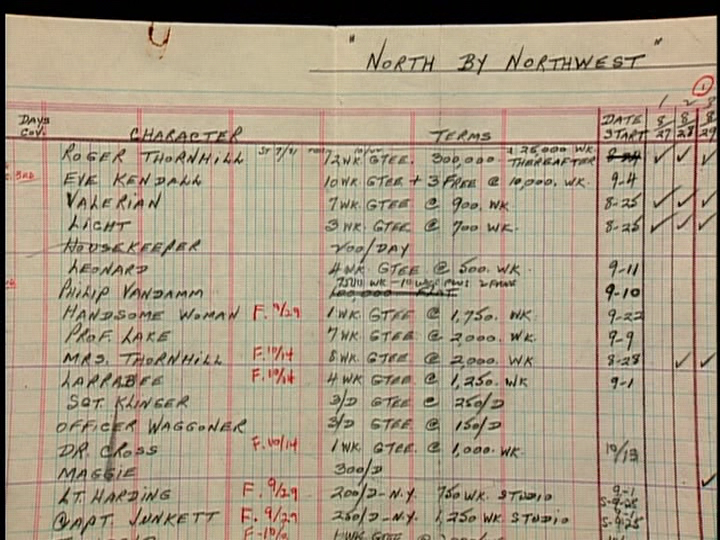 " NORTH BY NORTHWEST "
1 2 3
DAYS COV. CHARACTER TERMS DATE START 8 27 8 28 8 29
ROGER THORNHILL 12 WK GTEE. 300,000 - + 25,000 WK. THEREAFTER 8-24 ✓ ✓ ✓
EVE KENDALL 10 WK GTEE + 3 FREE @ 10,000. WK. 9-4
VALERIAN 7 WK GTEE @ 900. WK. 8-25 ✓ ✓ ✓
LICHT 3 WK GTEE @ 700 WK. 8-25 ✓ ✓ ✓
HOUSEKEEPER 200/DAY
LEONARD 4 WK GTEE @ 500. WK 9-11
PHILIP VANDAMM 100,000 FLAT 9-10
HANDSOME WOMAN F. 9/29 1 WK GTEE @ 1,750. WK. 9-22
PROF. LAKE 7 WK GTEE @ 2,000. WK. 9-9
MRS. THORNHILL F. 10/14 8 WK GTEE @ 2,000. WK 8-28 ✓ ✓
LARRABEE F. 10/14 4 WK GTEE @ 1,250. WK 9-1
SGT. KLINGER 3/D GTEE @ 250/D
OFFICER WAGGONER 3/D GTEE @ 150/D
DR. CROSS F. 10/14 1 WK GTEE @ 1,000. WK. 10/13
MAGGIE 300/D ✓
LT. HARDING F. 9/29 200/D-N.Y. 750 WK. STUDIO 9-1 S-9-25
CAPT. JUNKETT F. 9/29 250/D-N.Y. 1,250 WK STUDIO S-9-25